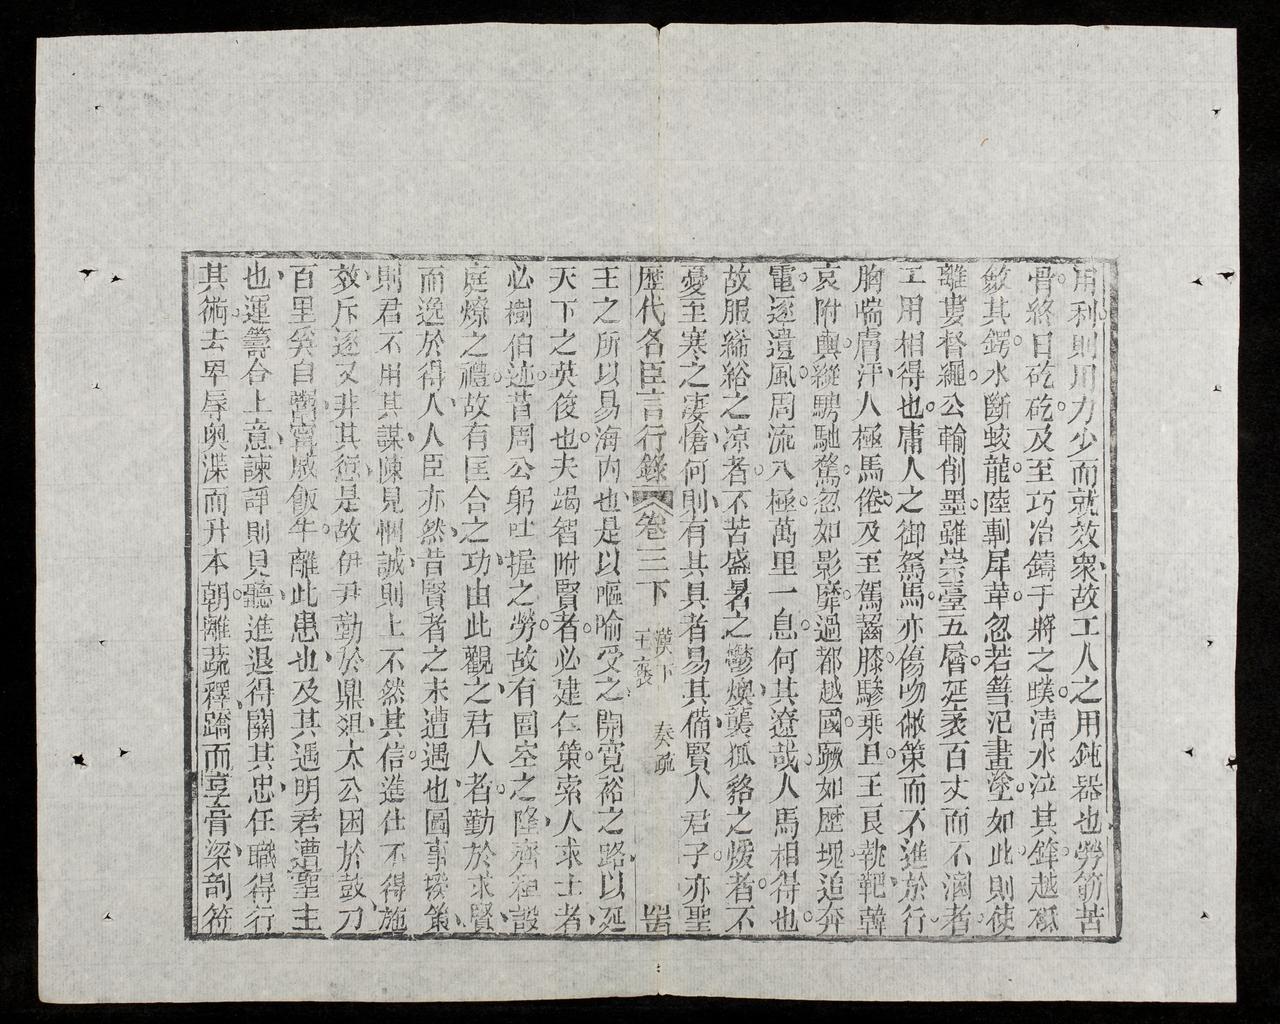 用利則用力少而就效衆故工人之用鈍器也勞筋苦
骨終日矻矻及至巧冶鑄干將之璞清水淬其鋒越砥
斂其鍔水斷蛟龍陸剸犀革忽若篲氾畫塗如此則使
離婁督繩公輸削墨雖崇臺五層延袤百丈而不溷者
工用相得也庸人之御駑馬亦傷吻敝策而不進於行
胸喘膚汗人極馬倦及至駕齧膝驂乘旦王良執靶韓
哀附輿縱騁馳騖忽如影靡過都越國蹶如歷塊追奔
電逐遺風周流八極萬里一息何其遼哉人馬相得也
故服絺綌之凉者不苦盛暑之鬱燠襲狐貉之煖者不
憂至寒之凄愴何則有其具者易其備賢人君子亦聖
歷代名臣言行錄 卷三下 漢下 王褒 奏疏
王之所以易海內也是以嘔喻受之開寬裕之路以延
天下之英俊也夫竭智附賢者必建仁策索人求士者
必樹伯迹昔周公躬吐握之勞故有圄空之隆齊桓設
庭燎之禮故有匡合之功由此觀之君人者勤於求賢
而逸於得人人臣亦然昔賢者之未遭遇也圖事揆策
則君不用其謀陳見悃誠則上不然其信進仕不得施
效斥逐又非其愆是故伊尹勤於鼎俎太公困於鼓刀
百里奚自鬻甯戚飯牛離此患也及其遇明君遭聖主
也運籌合上意諫諍則見聽進退得關其忠任職得行
其術去卑辱奧渫而升本朝離蔬釋蹻而享膏梁剖符